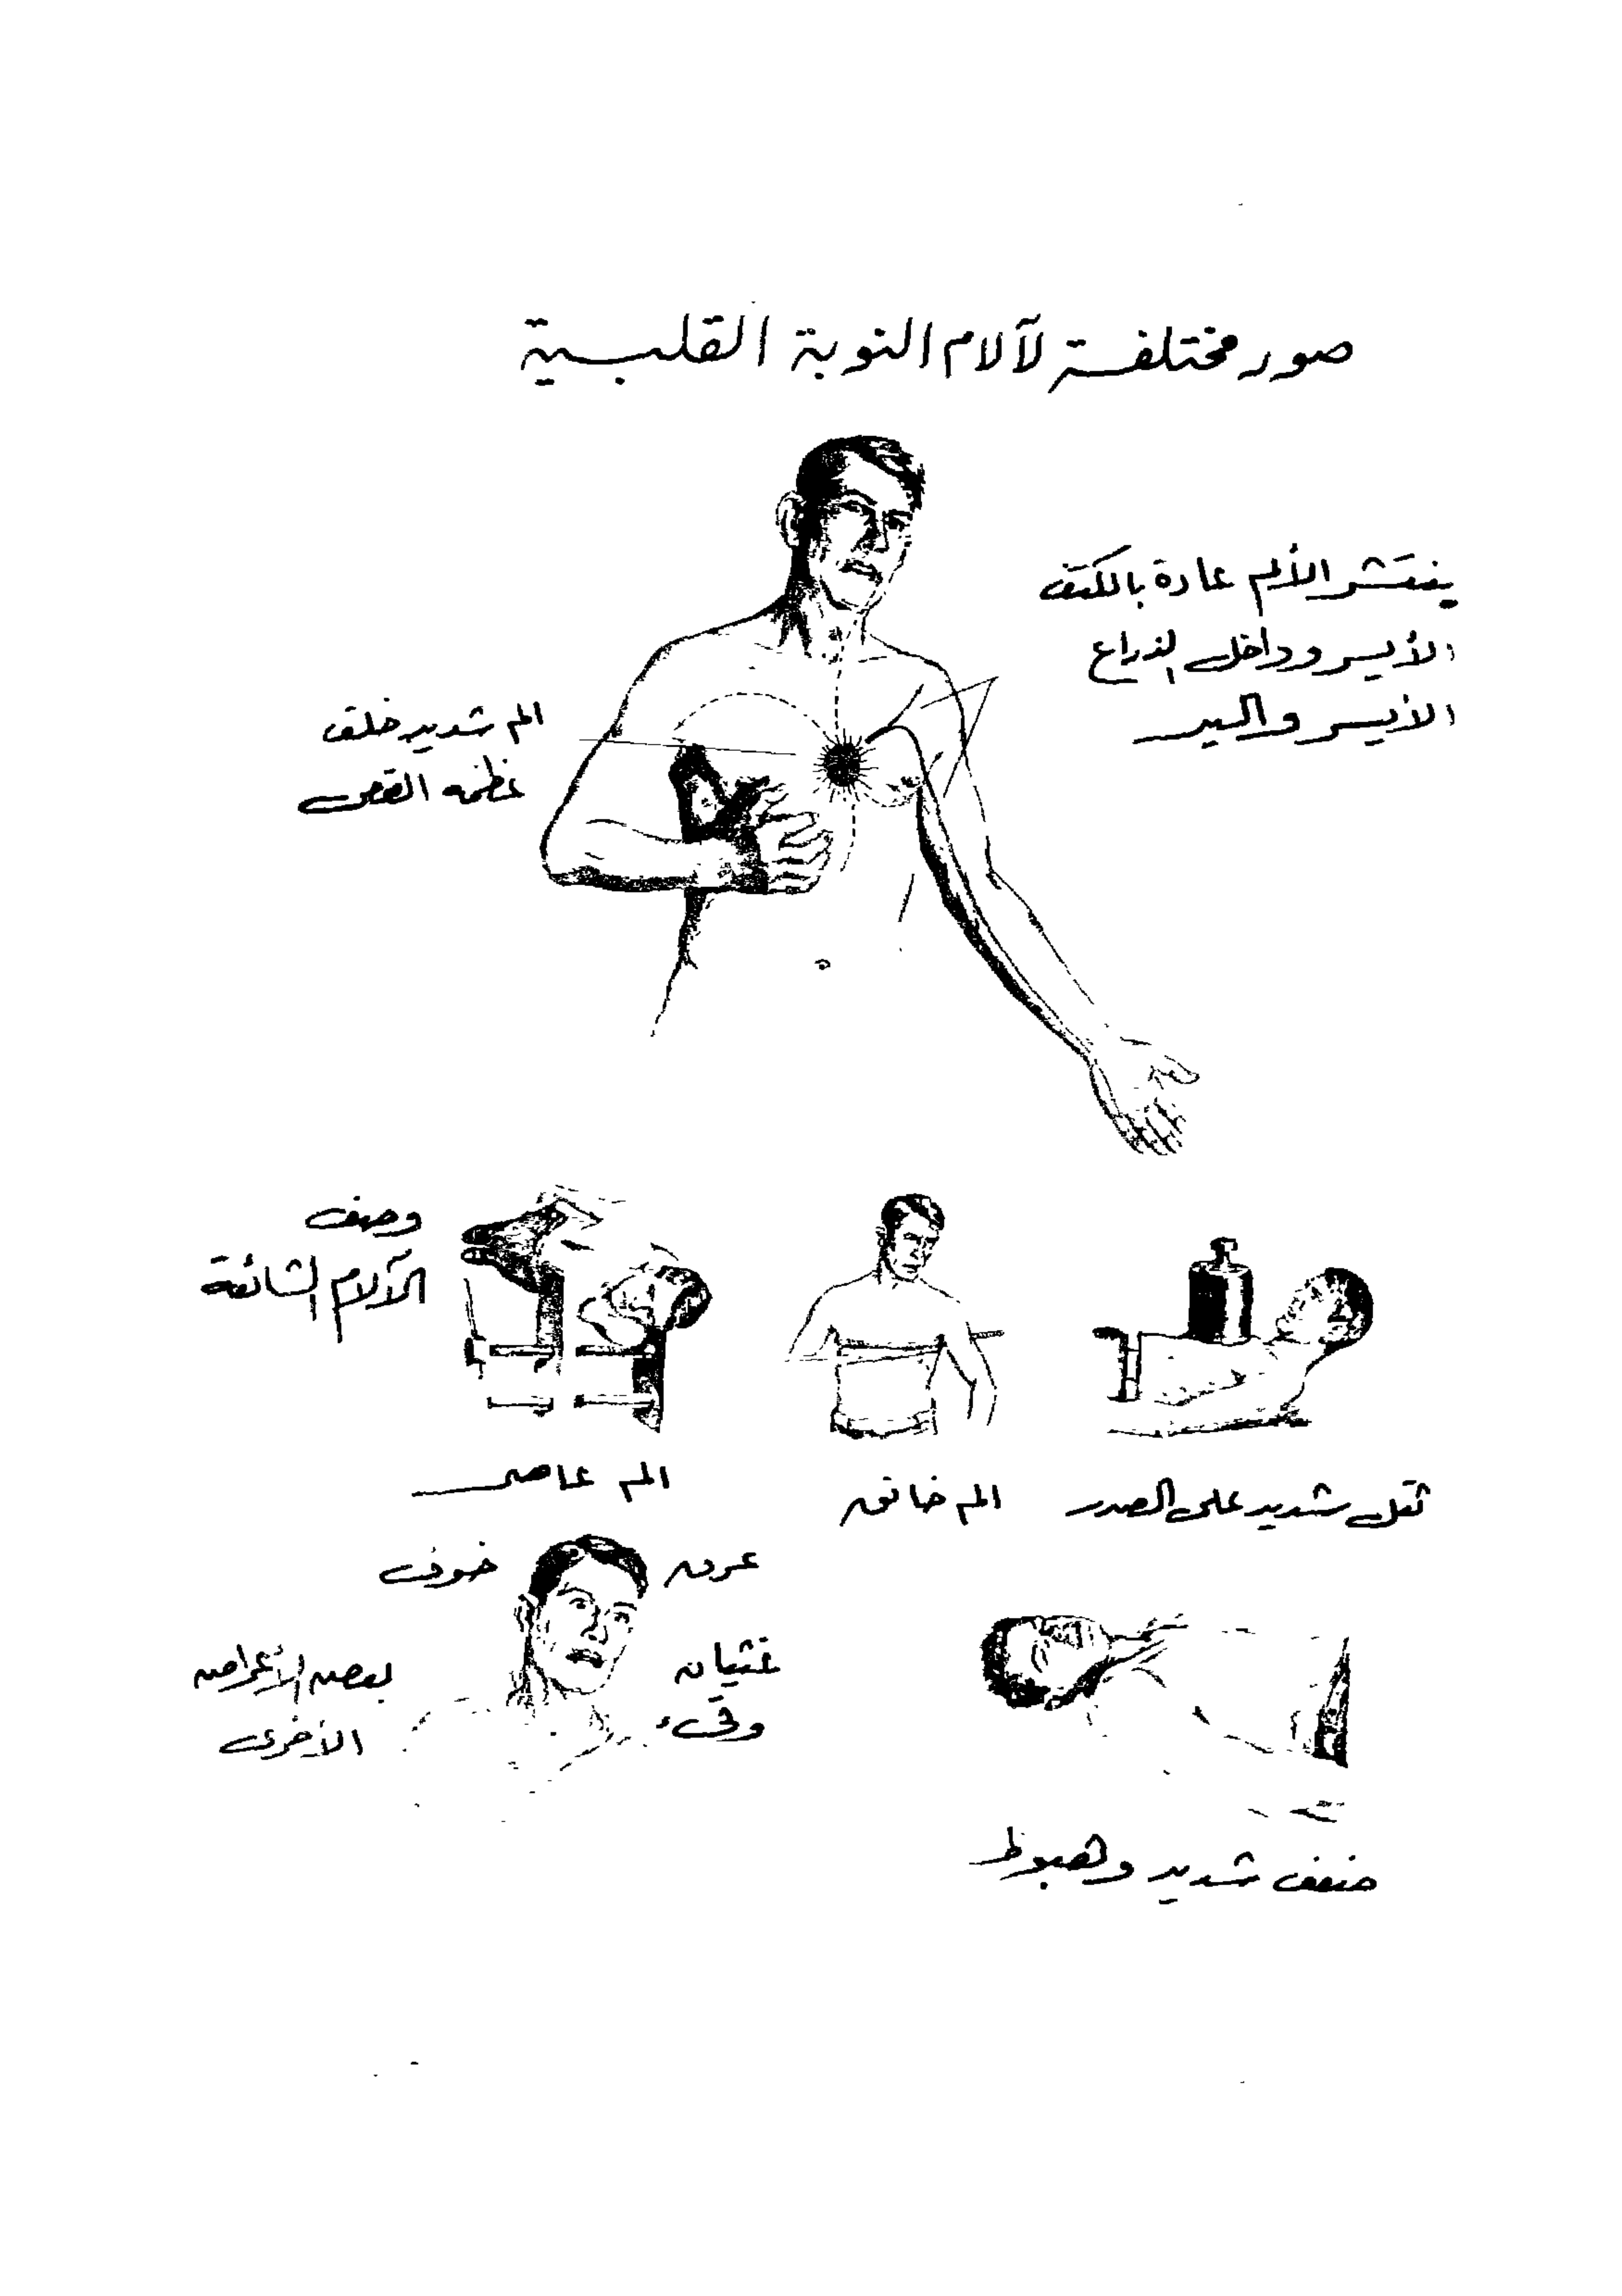 صور مختلفة لآلام النوبة القلبية
ينتشر الألم عادة بالكتف
الأيسر وداخل الذراع
الأيسر واليد
الم شديد خلف
عظمة القص
وصف
الآلام الشائعة
ثقل شديد على الصدر
الم خانق
الم عاصر
عرق
خوف
غثيان
وقىء
بعض الأعراض
الأخرى
ضعف شديد وهبوط